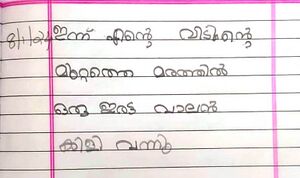 8/1/24 ഇന്ന് എന്റെ വീടിന്റെ
മുറ്റത്തെ മരത്തിൽ
ഒരു ഇരട്ട വാലൻ
കിളി വന്നു